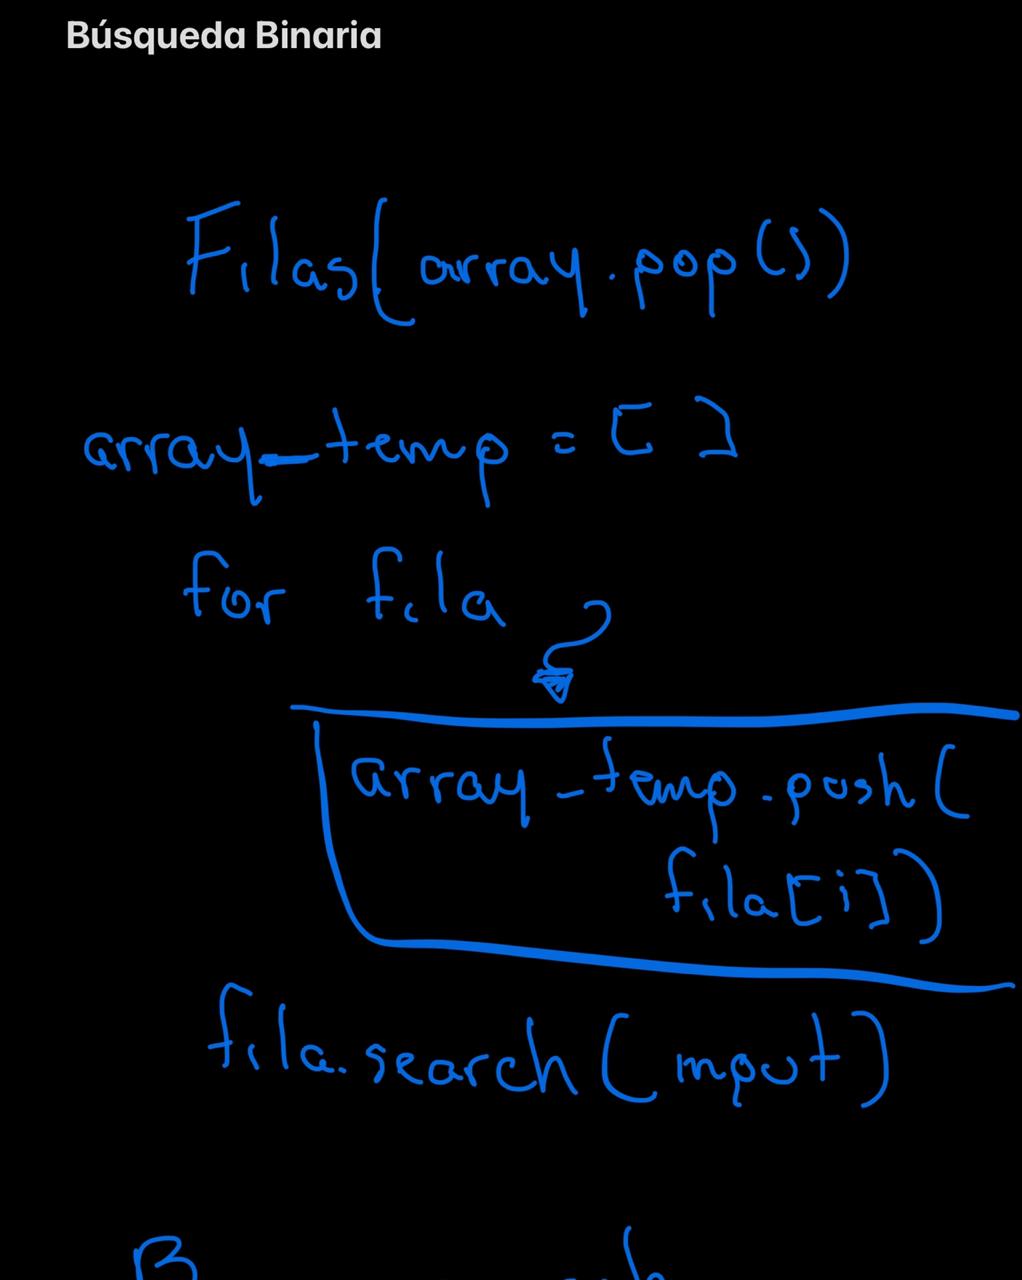 Búsqueda Binaria
Filas(array.pop())
array_temp = [ ]
for fila
array_temp.push(
fila[i])
fila.search(input)